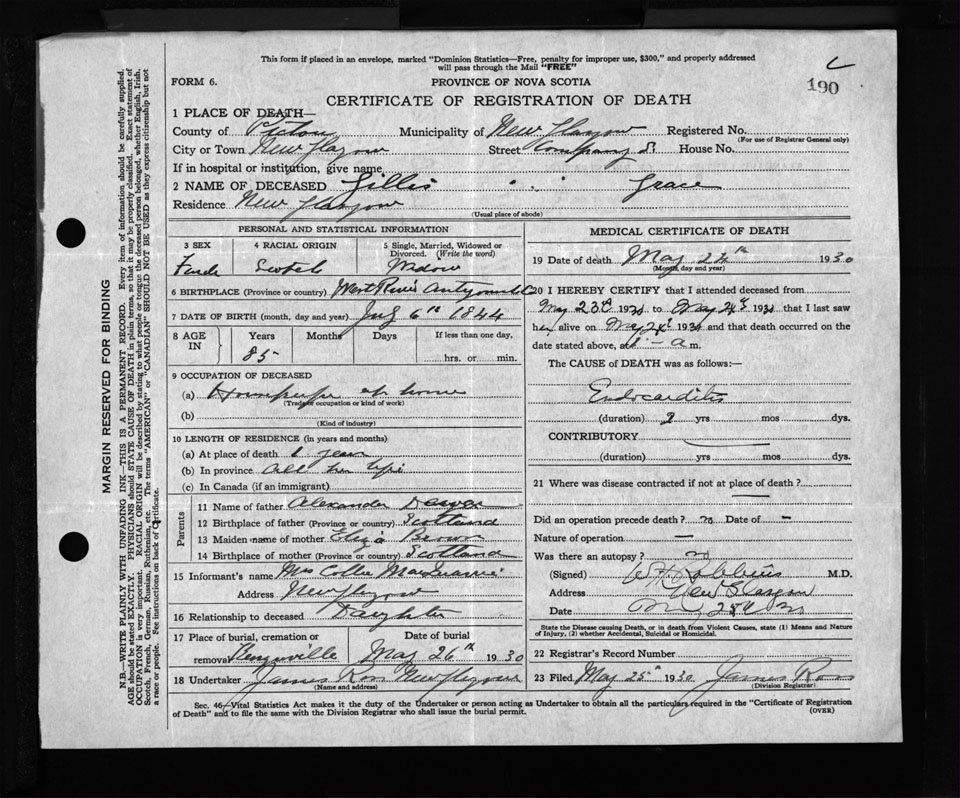 This form if placed in an envelope, marked "Dominion Statistics—Free, penalty for improper use, $300," and properly addressed
will pass through the Mail "FREE"
190
FORM 6.
PROVINCE OF NOVA SCOTIA
CERTIFICATE OF REGISTRATION OF DEATH
1 PLACE OF DEATH—
County of Pictou Municipality of New Glasgow Registered No.
(For use of Registrar General only)
City or Town New Glasgow Street Company St House No.
If in hospital or institution, give name
2 NAME OF DECEASED Gillis Grace
Residence New Glasgow
(Usual place of abode)
PERSONAL AND STATISTICAL INFORMATION
3 SEX
4 RACIAL ORIGIN
5 Single, Married, Widowed or Divorced. (Write the word)
Female Scotch Widow
6 BIRTHPLACE (Province or country) West River
7 DATE OF BIRTH (month, day and year) 6th 1844
8 AGE IN
Years Months Days If less than one day,
85
hrs. or min.
9 OCCUPATION OF DECEASED
(a) at home
(Trade, occupation or kind of work)
(b)
(Kind of industry)
10 LENGTH OF RESIDENCE (in years and months)
(a) At place of death
(b) In province all her life
(c) In Canada (if an immigrant)
Parents
11 Name of father Alexander
12 Birthplace of father (Province or country) Scotland
13 Maiden name of mother Eliza Brown
14 Birthplace of mother (Province or country) Scotland
15 Informant's name Mrs Collie
Address New Glasgow
16 Relationship to deceased Daughter
17 Place of burial, cremation or removal
Date of burial
May 26th 1930
18 Undertaker James Ross New Glasgow
(Name and address)
MEDICAL CERTIFICATE OF DEATH
19 Date of death May 24th 1930
(Month, day and year)
20 I HEREBY CERTIFY that I attended deceased from
May 23rd 1930 to May 24th 1930 that I last saw
her alive on May 24th 1930 and that death occurred on the
date stated above, at — a m.
The CAUSE of DEATH was as follows:—
Endocarditis
(duration) 2 yrs mos dys.
CONTRIBUTORY
(duration) yrs mos dys.
21 Where was disease contracted if not at place of death?
Did an operation precede death? no Date of —
Nature of operation —
Was there an autopsy? no
(Signed) M.D.
Address New Glasgow
Date
State the Disease causing Death, or in death from Violent Causes, state (1) Means and Nature
of Injury, (2) whether Accidental, Suicidal or Homicidal.
22 Registrar's Record Number
23 Filed May 25th 1930 James Ross
(Division Registrar)
Sec. 46—Vital Statistics Act makes it the duty of the Undertaker or person acting as Undertaker to obtain all the particulars required in the "Certificate of Registration
of Death" and to file the same with the Division Registrar who shall issue the burial permit.
(OVER)
MARGIN RESERVED FOR BINDING
N.B.—WRITE PLAINLY WITH UNFADING INK—THIS IS A PERMANENT RECORD. Every item of information should be carefully supplied.
AGE should be stated EXACTLY. PHYSICIANS should STATE CAUSE OF DEATH in plain terms, so that it may be properly classified. Exact statement of
OCCUPATION is very important. RACIAL ORIGIN will be described by stating to what people or tongue the deceased person belonged, whether English, Irish,
Scotch, French, German, Russian, Ruthenian, etc. The terms "AMERICAN" or "CANADIAN" SHOULD NOT BE USED as they express citizenship but not
a race or people. See instructions on back of Certificate.